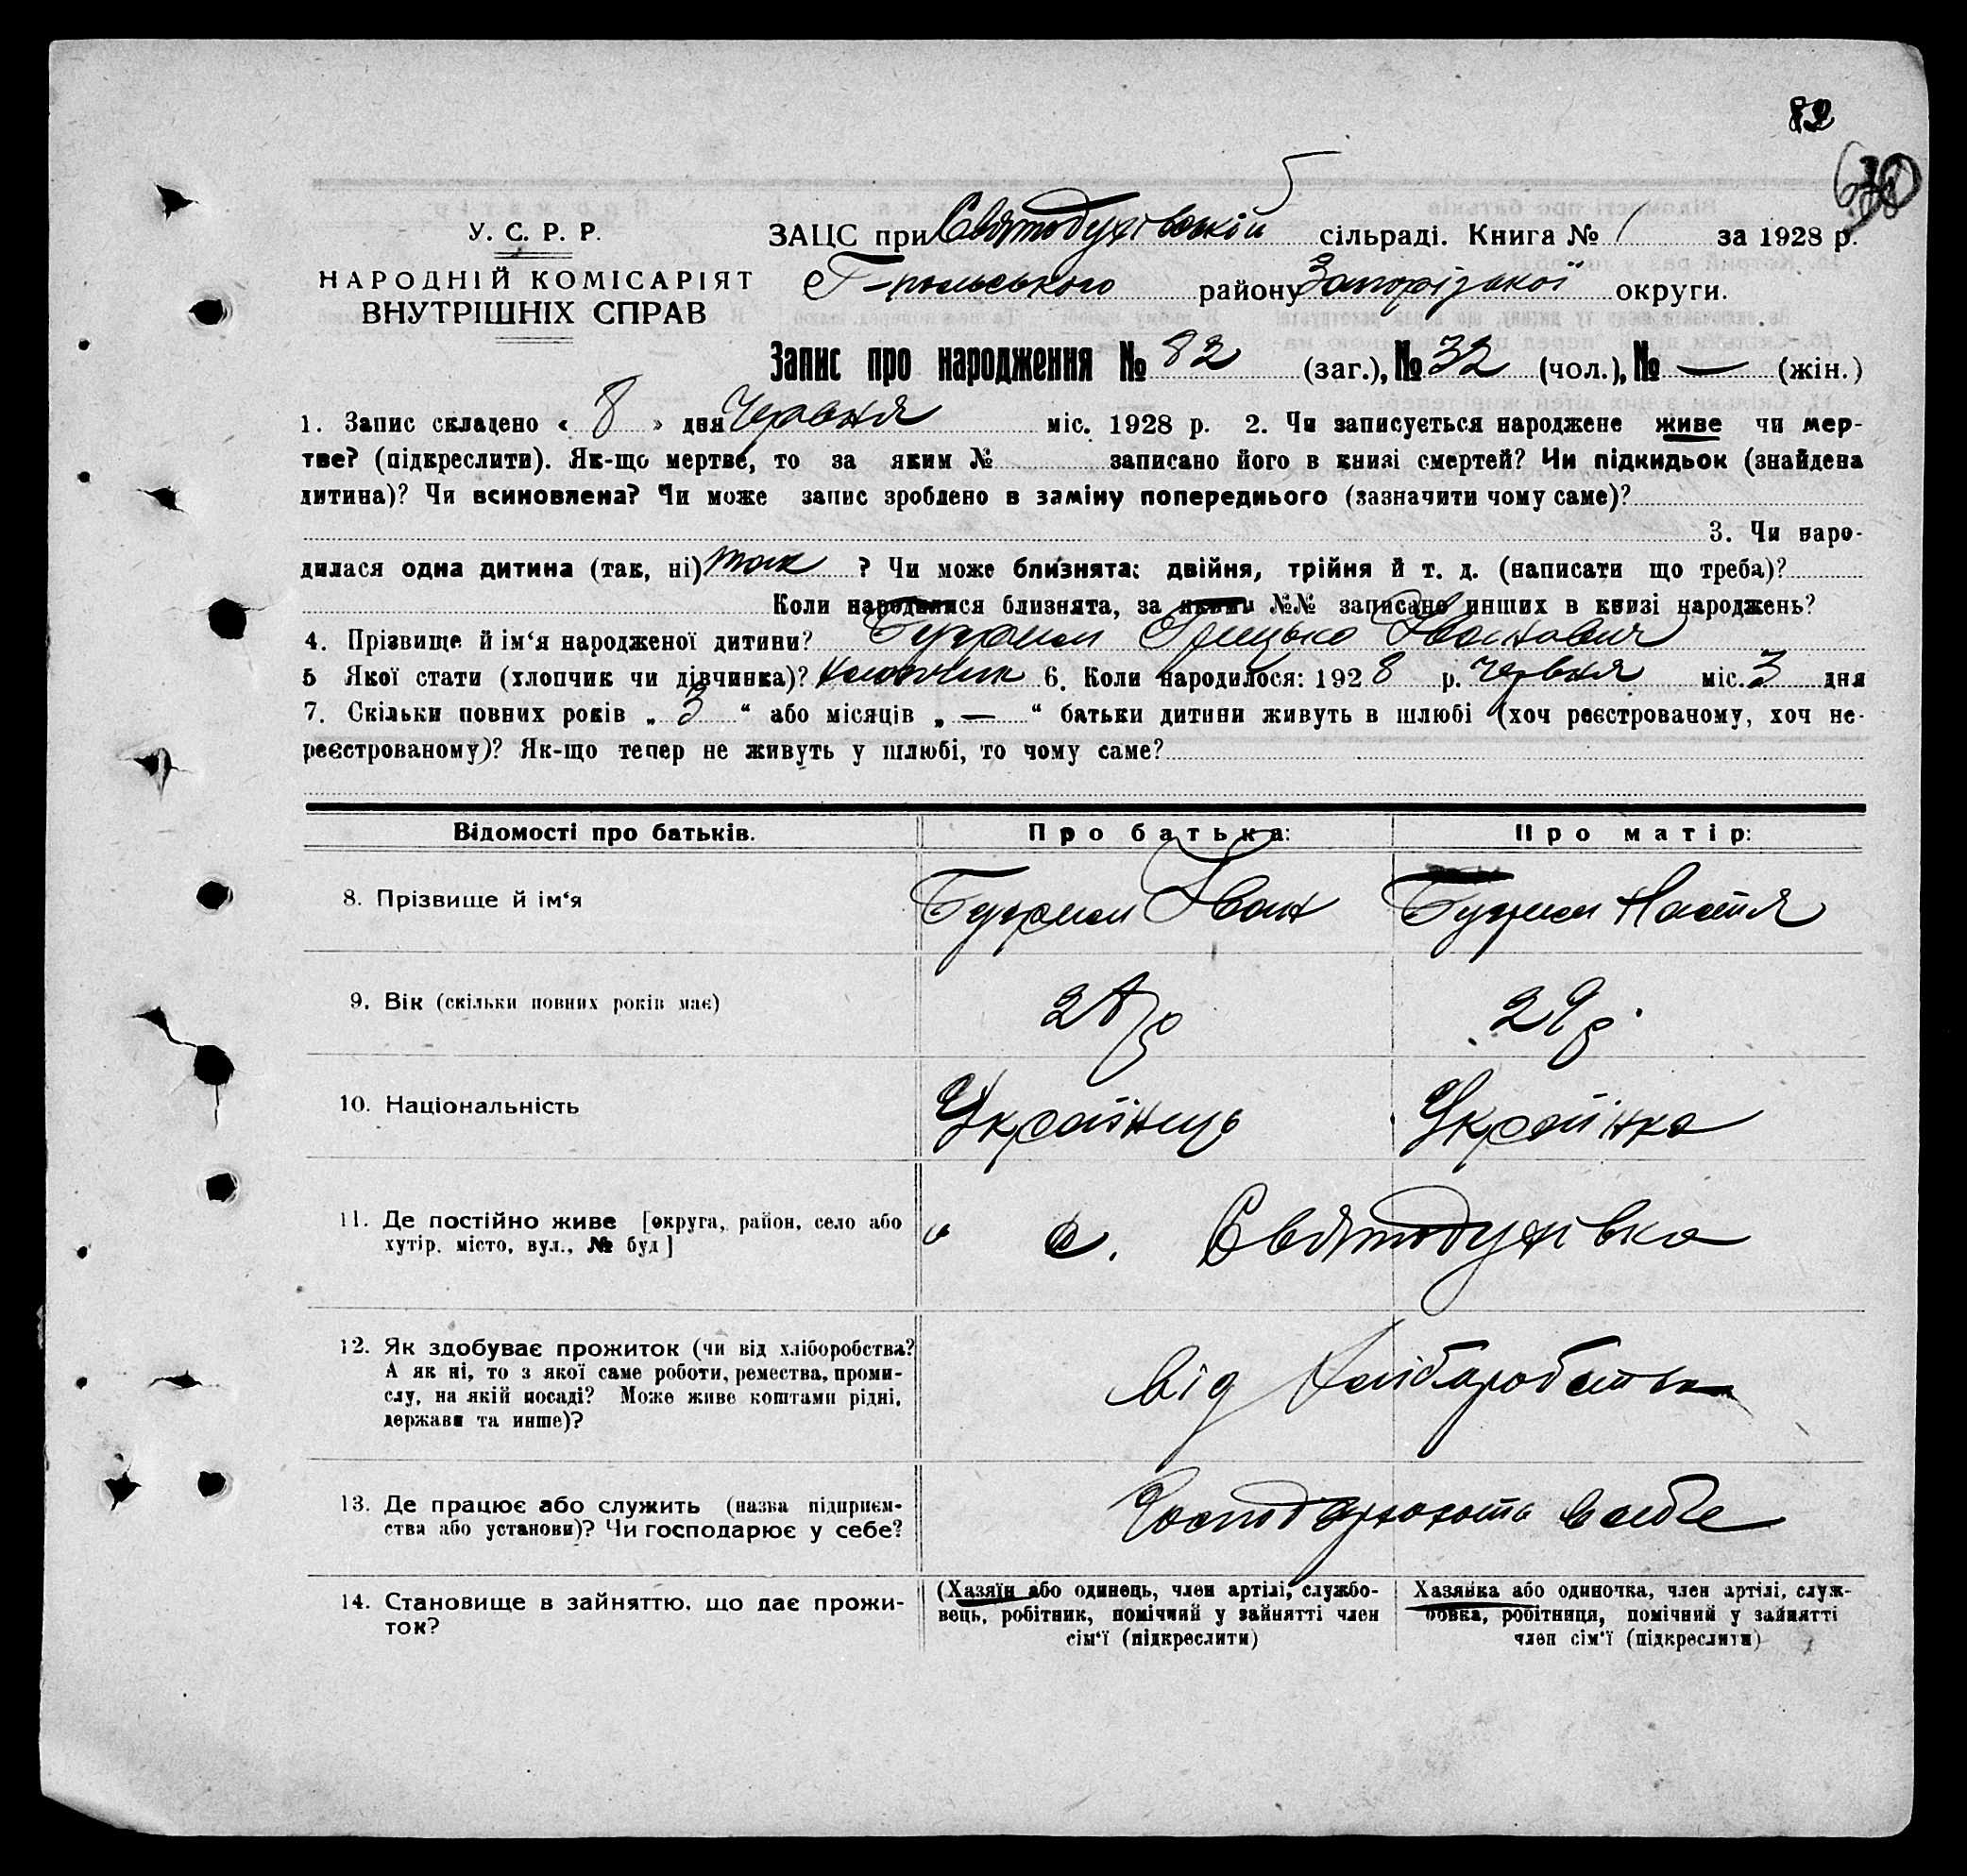 82
У. С. Р. Р.
НАРОДНІЙ КОМІСАРІЯТ
ВНУТРІШНІХ СПРАВ
ЗАЦС при Святодухівській сільраді. Книга № 1 за 1928 р.
Т-польського району Запорізької округи.
Запис про народження № 82 (заг.), № 32 (чол.), № — (жін.)
1. Запис складено « 8 » дня Червня міс. 1928 р. 2. Чи записується народжене живе чи мер-
тве? (підкреслити). Як-що мертве, то за яким № записано його в книзі смертей? Чи підкидьок (знайдена
дитина)? Чи всиновлена? Чи може запис зроблено в заміну попереднього (зазначити чому саме)?
3. Чи наро-
дилася одна дитина (так, ні) так ? Чи може близнята: двійня, трійня й т. д. (написати що треба)?
Коли народилися близнята, за якими №№ записано инших в книзі народжень?
4. Прізвище й ім‘я народженої дитини? Грицько Іванович
5 Якої стати (хлопчик чи дівчинка)? хлопчик 6. Коли народилося: 1928 р. червня міс. 3 дня
7. Скільки повних років „ 3 “ або місяців „ — “ батьки дитини живуть в шлюбі (хоч реєстрованому, хоч не-
реєстрованому)? Як-що тепер не живуть у шлюбі, то чому саме?
Відомості про батьків. Про батька: Про матір:
8. Прізвище й ім‘я Іван Настя
9. Вік (скільки повних років має) 29 р.
10. Національність Українець Українка
11. Де постійно живе [округа, район, село або
хутір, місто, вул., № буд] с. Святодухівка
12. Як здобуває прожиток (чи від хліборобства?
А як ні, то з якої саме роботи, ремества, проми-
слу, на якій посаді? Може живе коштами рідні,
держави та инше)?
від хліборобства
13. Де працює або служить (назва підприєм-
ства або установи)? Чи господарює у себе?
Господарюють в себе
14. Становище в зайняттю, що дає прожи-
ток?
(Хазяїн або одинець, член артілі, службо-
вець, робітник, помічний у зайнятті член
сім‘ї (підкреслити)
Хазяйка або одиночка, член артілі, служ-
бовка, робітниця, помічний у зайнятті
член сім‘ї (підкреслити)